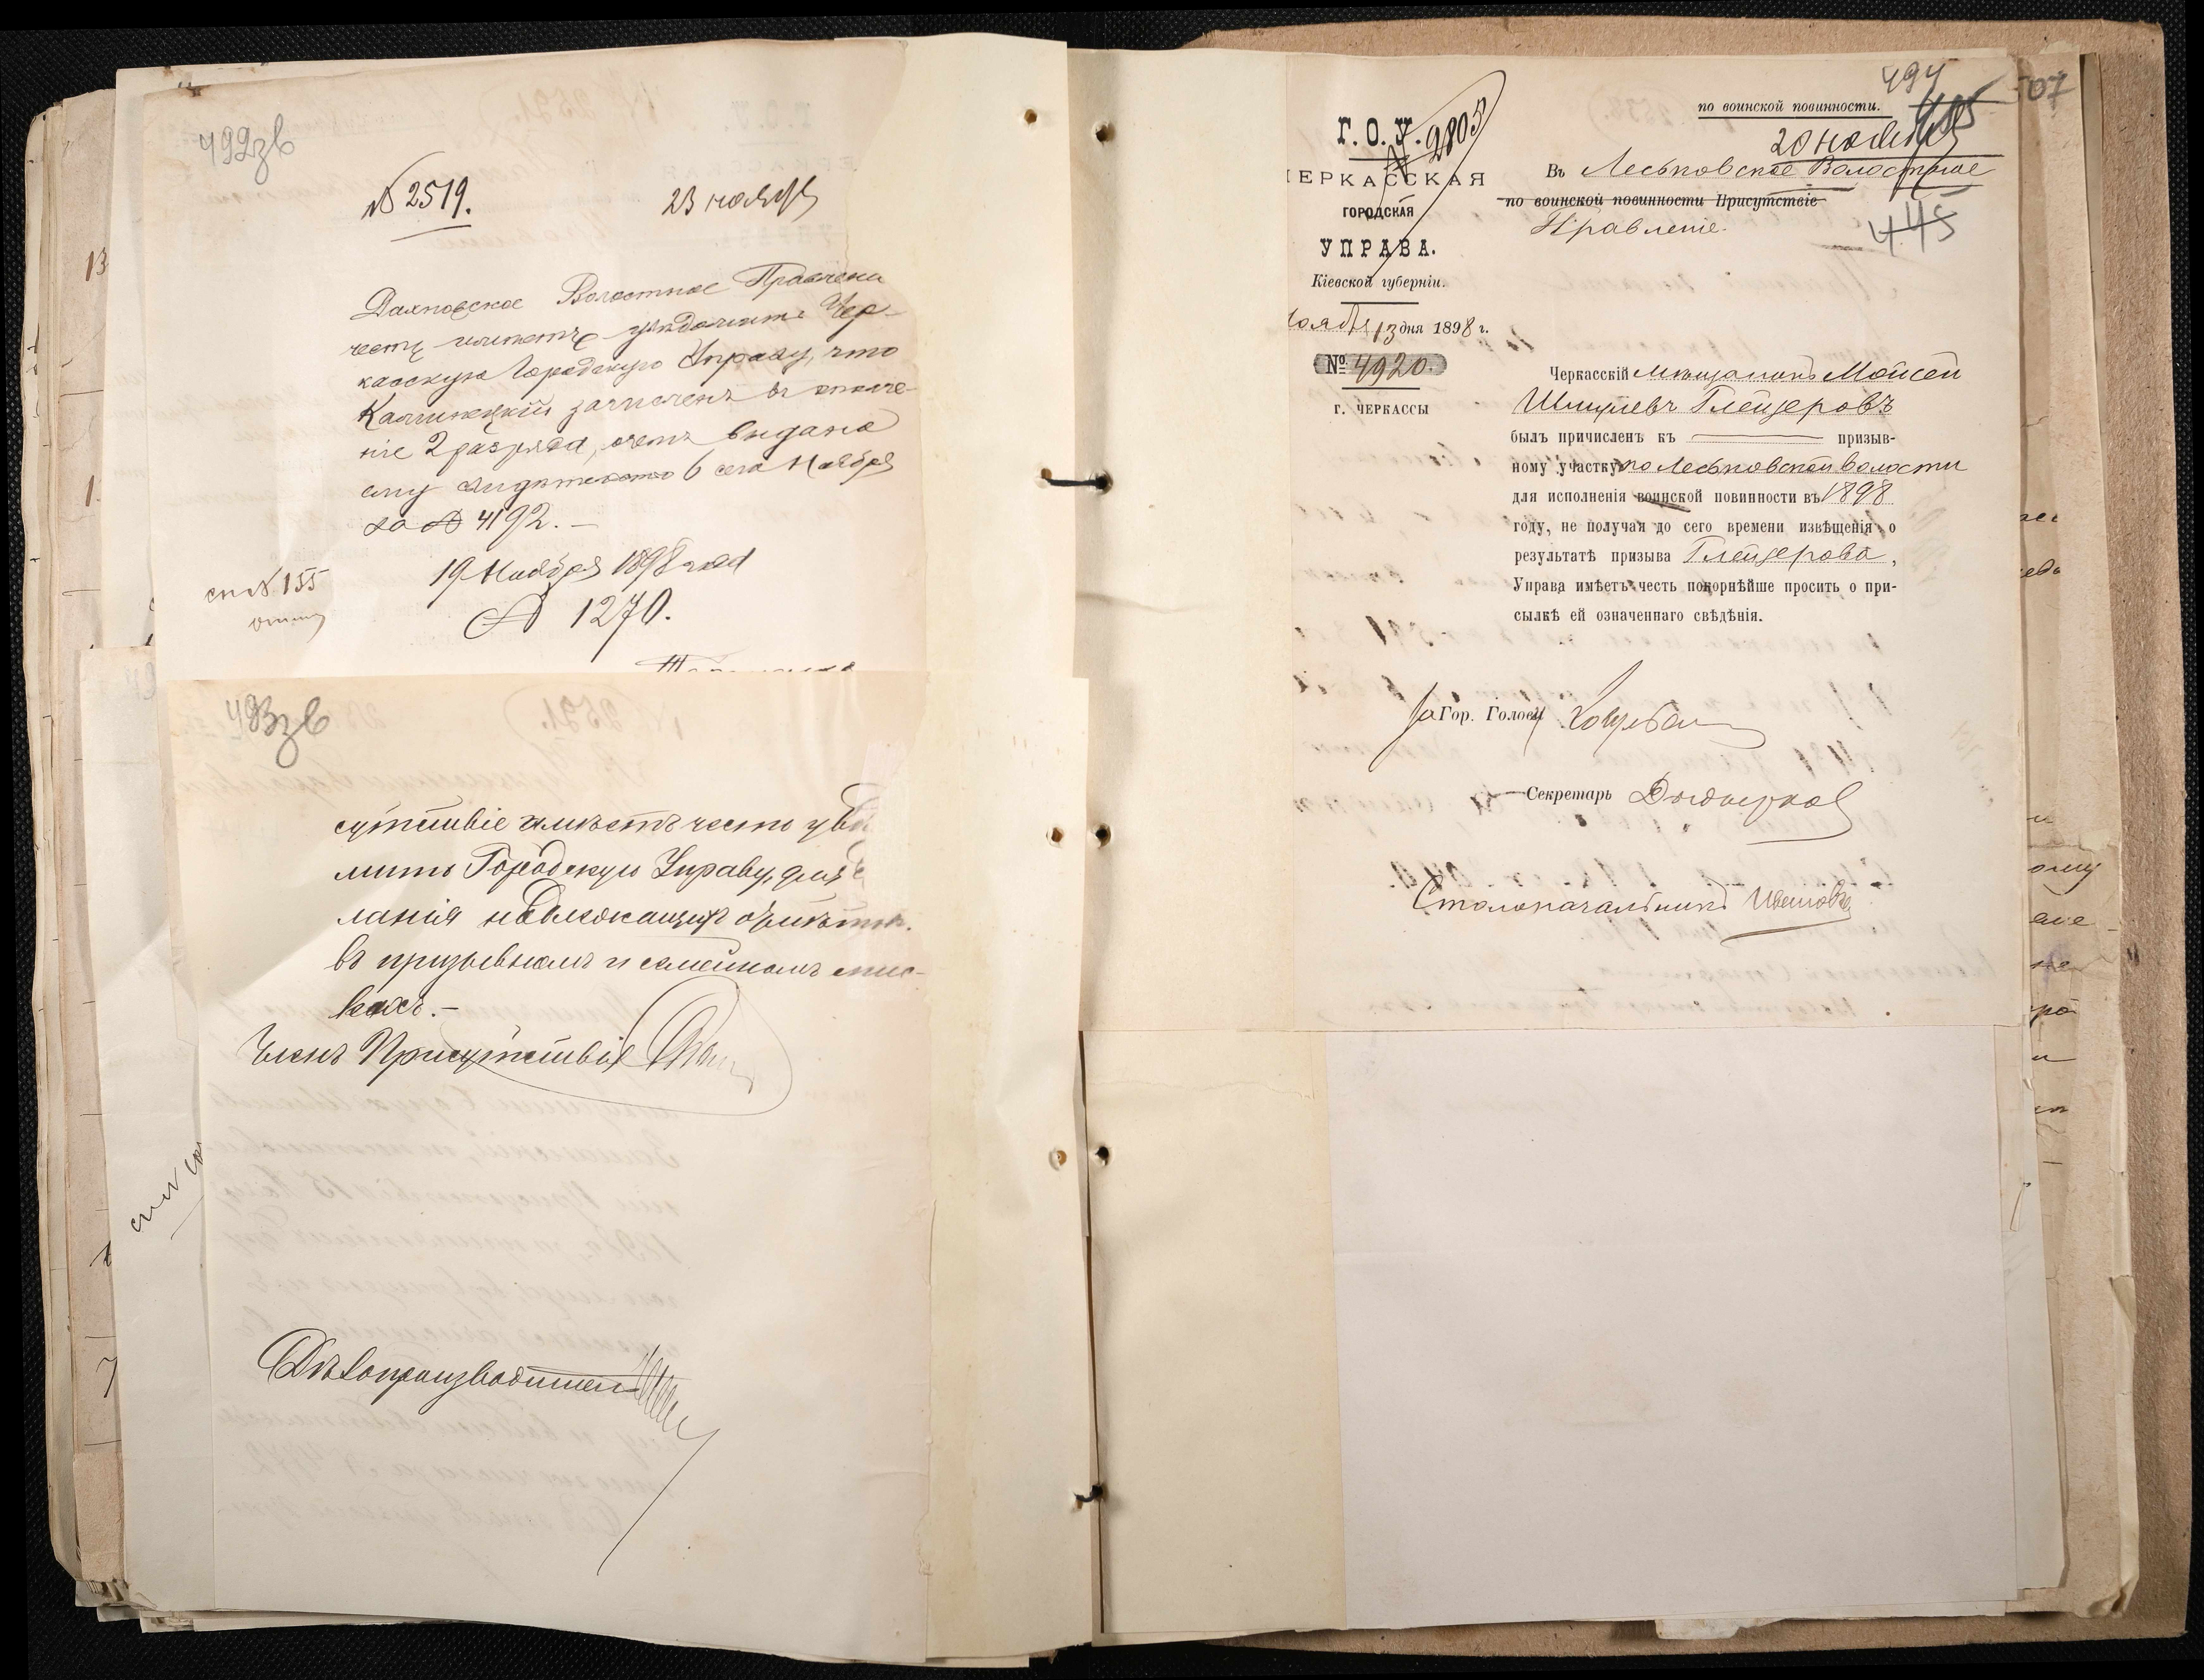 492зв
№ 2519.
23 ноября
Волостное Правлени
честь имеетъ уведомить Чер-
касскую Городскую Управу, что
зачисленъ въ ополче-
ніе 2 разряда, о чемъ выдано
ему 6 сего Ноября
за № 4192.-
19 Ноября 1898 года
№ 1270.
сп № 155
493зв
сутствіе имѣетъ честь увѣ
мить Городскую Управу, для
ланія надлежащихъ отмѣтокъ
въ призывномъ и семейномъ спис-
кахъ.-
Членъ Присутствія
Дѣлопроизводитель
494
507
по воинской повинности.
485
20 ноября
Г. О. У.
№ 2803
ЧЕРКАССКАЯ
ГОРОДСКАЯ
УПРАВА.
Кіевской губерніи.
Ноября 13 дня 1898 г.
№ 4920.
г. ЧЕРКАССЫ
Въ Леськовское Волостное
по воинской повинности Присутствіе
Правленіе.
445
Черкасскій Мѣщанинъ Мойсей
Шмулевъ Глейзеровъ
былъ причисленъ къ призыв-
ному участку по Леськовской волости
для исполненія воинской повинности въ 1898
году, не получая до сего времени извѣщенія о
результатѣ призыва Глейзерова,
Управа имѣетъ честь покорнѣйше просить о при-
сылкѣ ей означеннаго свѣдѣнія.
За Гор. Голову
Секретарь
Столоначальникъ